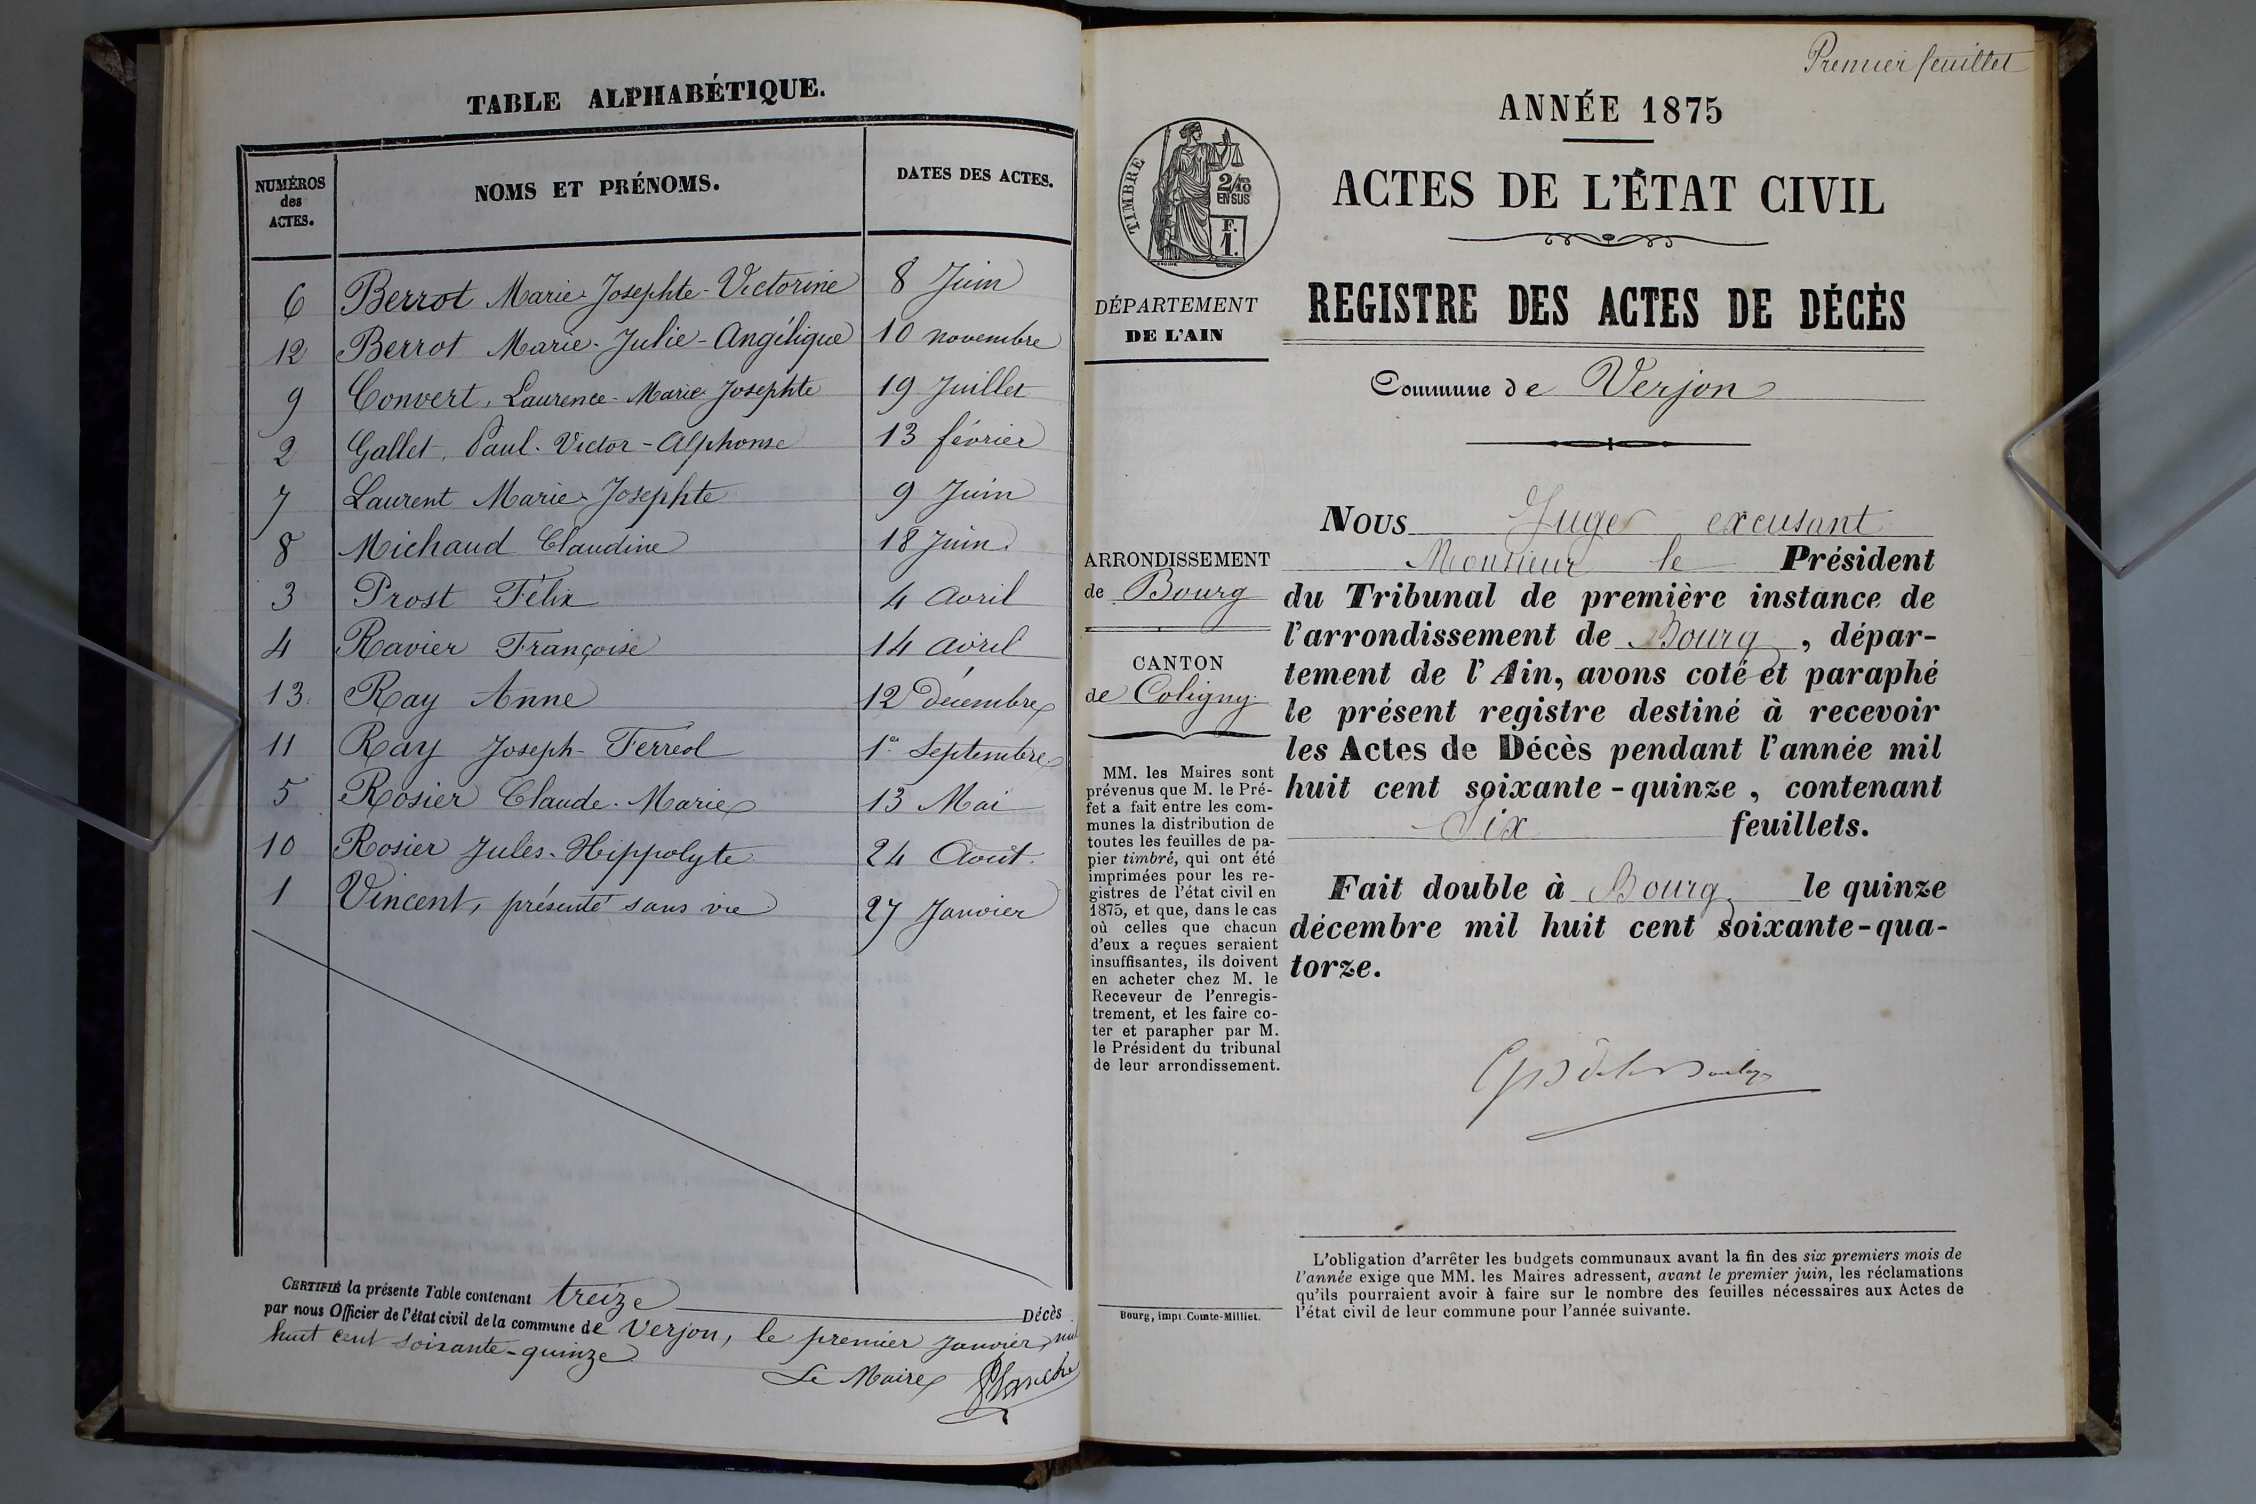 TABLE ALPHABÉTIQUE.
NUMÉROS
des
ACTES.
NOMS ET PRÉNOMS.
DATES DES ACTES.
6 Berrot Marie-Josephte-Victorine 8 Juin
12 Berrot Marie-Julie-Angélique 10 novembre
9 Convert, Laurence-Marie-Josephte 19 Juillet
2 Gallet, Paul-Victor-Alphonse 13 février
7 Laurent Marie-Josephte 9 Juin
8 Michaud Claudine 18 Juin.
3 Prost Félix 4 avril
4 Ravier Françoise 14 avril
13 Ray Anne 12 décembre
11 Ray Joseph-Ferréol 1er Septembre
5 Rosier Claude-Marie 13 Mai
10 Rosier Jules-Hippolyte 24 Août.
1 Vincent, présenté sans vie 27 Janvier
CERTIFIÉ la présente Table contenant treize Décès
par nous Officier de l'état civil de la commune de Verjon, le premier Janvier mil
huit cent soixante-quinze
Le Maire
Premier feuillet
ANNÉE 1875
TIMBRE
2/10
EN SUS
F.
1.
ACTES DE L'ÉTAT CIVIL
DÉPARTEMENT
DE L'AIN
REGISTRE DES ACTES DE DÉCÈS
Commune de Verjon
ARRONDISSEMENT
de Bourg
CANTON
de Coligny
MM. les Maires sont
prévenus que M. le Pré-
fet a fait entre les com-
munes la distribution de
toutes les feuilles de pa-
pier timbré, qui ont été
imprimées pour les re-
gistres de l'état civil en
1875, et que, dans le cas
où celles que chacun
d'eux a reçues seraient
insuffisantes, ils doivent
en acheter chez M. le
Receveur de l'enregis-
trement, et les faire co-
ter et parapher par M.
le Président du tribunal
de leur arrondissement.
Bourg, impr. Comte-Milliet.
NOUS Juge excusant
Monsieur le Président
du Tribunal de première instance de
l'arrondissement de Bourg, dépar-
tement de l'Ain, avons coté et paraphé
le présent registre destiné à recevoir
les Actes de Décès pendant l'année mil
huit cent soixante-quinze, contenant
Six feuillets.
Fait double à Bourg le quinze
décembre mil huit cent soixante-qua-
torze.
L'obligation d'arrêter les budgets communaux avant la fin des six premiers mois de
l'année exige que MM. les Maires adressent, avant le premier juin, les réclamations
qu'ils pourraient avoir à faire sur le nombre des feuilles nécessaires aux Actes de
l'état civil de leur commune pour l'année suivante.